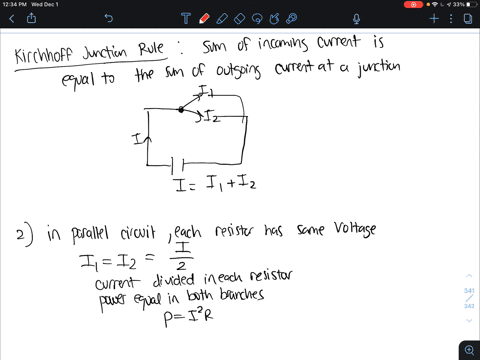 12:34 PM Wed Dec 1
33%
Kirchhoff Junction Rule : Sum of incoming current is
equal to the sum of outgoing current at a junction
I1
I2
I
I = I1 + I2
2) in parallel circuit, each resistor has same voltage
I1 = I2 = I/2
current divided in each resistor
power equal in both branches
P = I²R
341
343